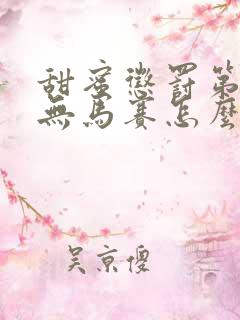 甜蜜懲罰第
無馬賽怎麼
吴京傻